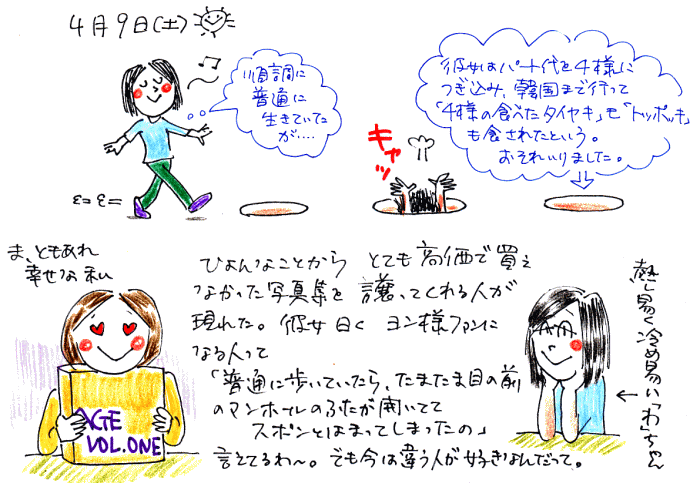 4月9日(土)
順調に
普通に
生きていた
が‥‥
キャッ
彼女はパート代を4様に
つぎ込み、韓国まで行って
「4様の食べたタイヤキ」も「トッポッキ」
も食されたという。
おそれいりました。
ま、ともあれ
幸せな私
AGE
VOL.ONE
ひょんなことから とても高価で買え
なかった写真集を譲ってくれる人が
現れた。彼女曰く ヨン様ファンに
なる人って
「普通に歩いていたら、たまたま目の前
のマンホールのふたが開いてて
スポンとはまってしまったの」
言えてるわ〜。でも今は違う人が好きなんだって。
熱し易く冷め易い「わ」ちゃん